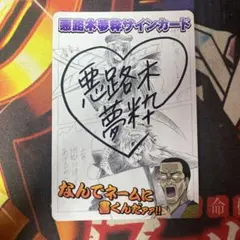 悪路木夢粋サインカード
悪路木
夢粋
なんでネームに
書くんだァァ!!
命